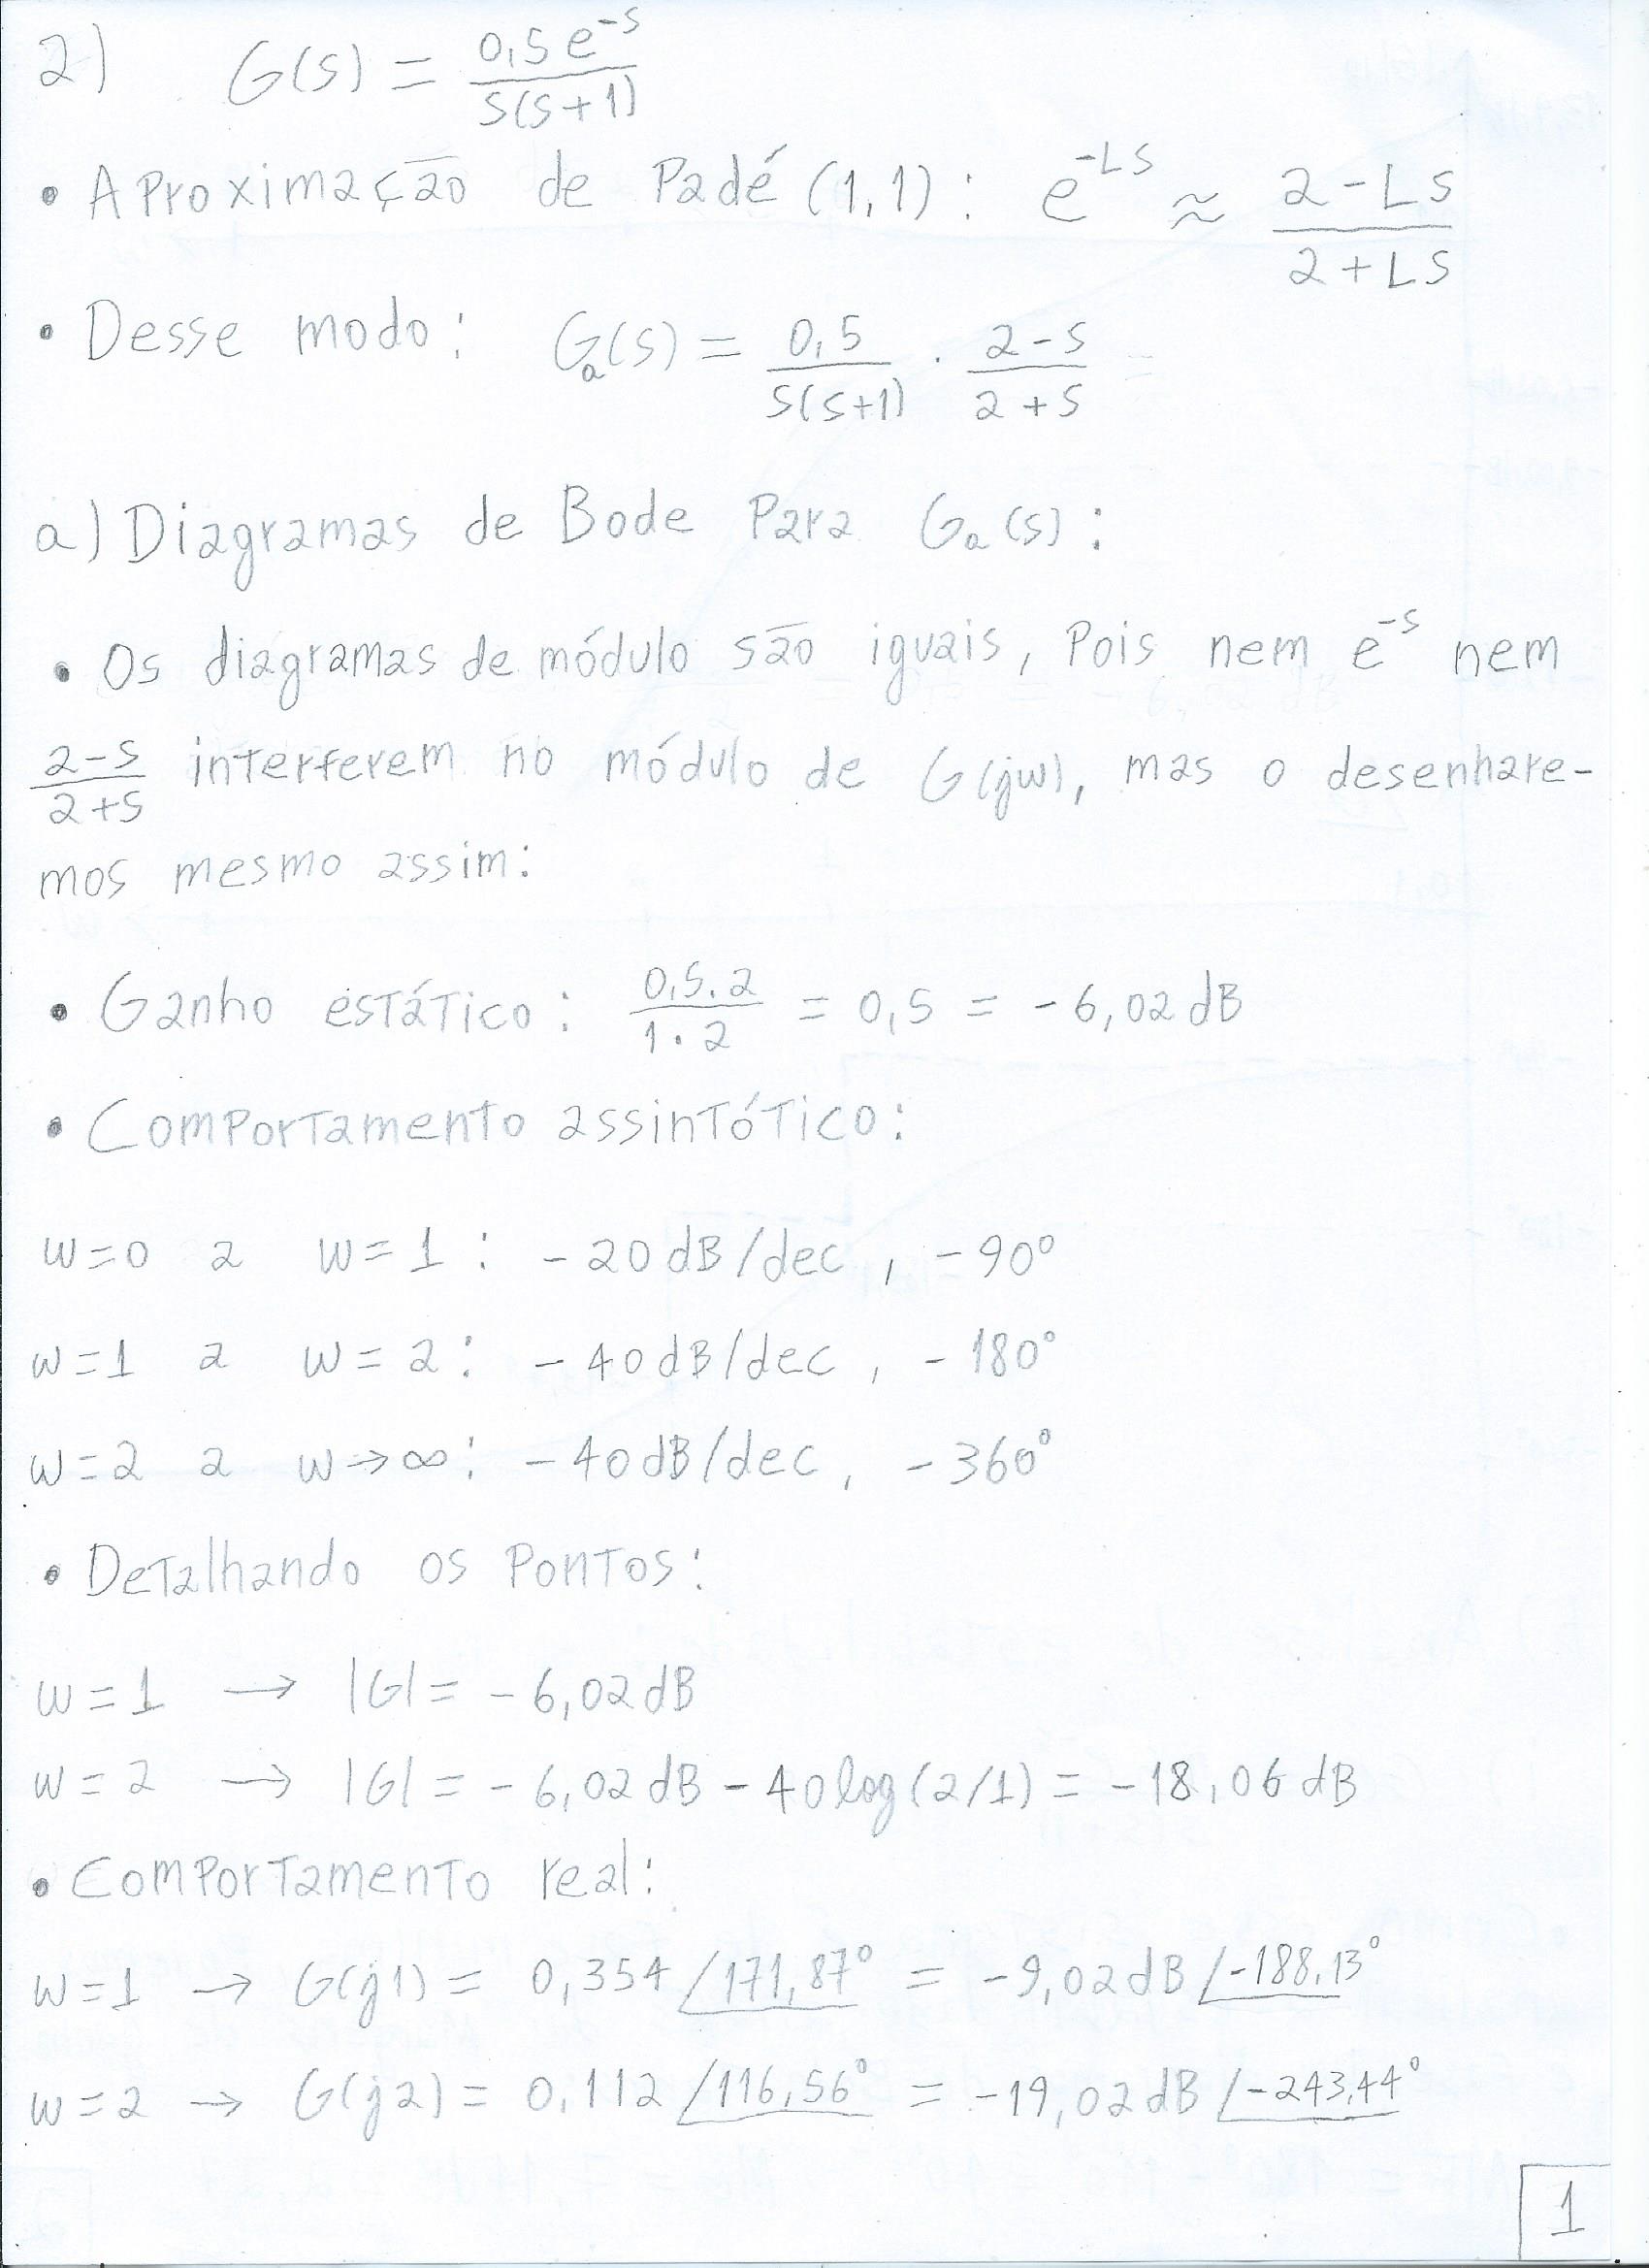 2) G(s) = 0,5 e^-s / s(s+1)
• Aproximação de Padé (1,1): e^-Ls ≈ 2-Ls / 2+Ls
• Desse modo: Ga(s) = 0,5 / s(s+1) · 2-s / 2+s =
a) Diagramas de Bode para Ga(s):
• Os diagramas de módulo são iguais, pois nem e^-s nem
2-s / 2+s interferem no módulo de G(jw), mas o desenhare-
mos mesmo assim:
• Ganho estático: 0,5.2 / 1.2 = 0,5 = -6,02 dB
• Comportamento assintótico:
w=0 a w=1: -20 dB/dec, -90°
w=1 a w=2: -40 dB/dec, -180°
w=2 a w→∞: -40 dB/dec, -360°
• Detalhando os pontos:
w=1 → |G| = -6,02 dB
w=2 → |G| = -6,02 dB - 40 log(2/1) = -18,06 dB
• Comportamento real:
w=1 → G(j1) = 0,354 /171,87° = -9,02 dB /-188,13°
w=2 → G(j2) = 0,112 /116,56° = -19,02 dB /-243,44°
1